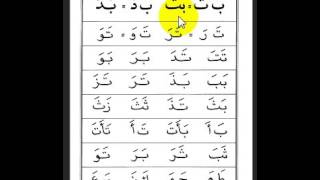 بَ تَ = بَتَ بَ دَ = بَدَ
تَ رَ = تَرَ تَ وَ = تَوَ
تَتَ تَدَ بَرَ تَوَ
بَبَ بَذَ تَرَ تَزَ
بَثَ تَذَ ثَثَ زَثَ
بَ أَ بَأَتَ تَ أَ تَأَتَ
ثَبَ ثَرَ بَرَ تَوَ